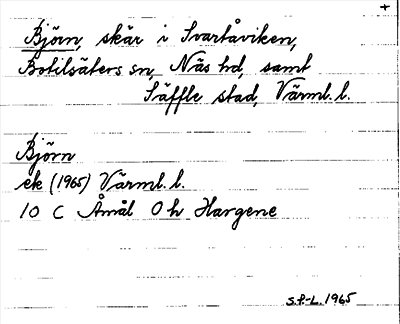 +
Björn, skär i Svartåviken,
Botilsäters sn, Näs hd, samt
Säffle stad, Värml. l.
Björn
ek (1965) Värml. l.
10 C Åmål 0 h Hargene
S.P-L. 1965